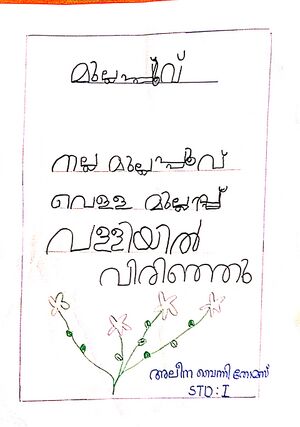 മുല്ലപ്പൂവ്
നല്ല മുല്ലപ്പൂവ്
വെള്ള മുല്ലപ്പൂ
വള്ളിയിൽ
വിരിഞ്ഞു
അലീന ബെന്നി തോമസ്
STD: I